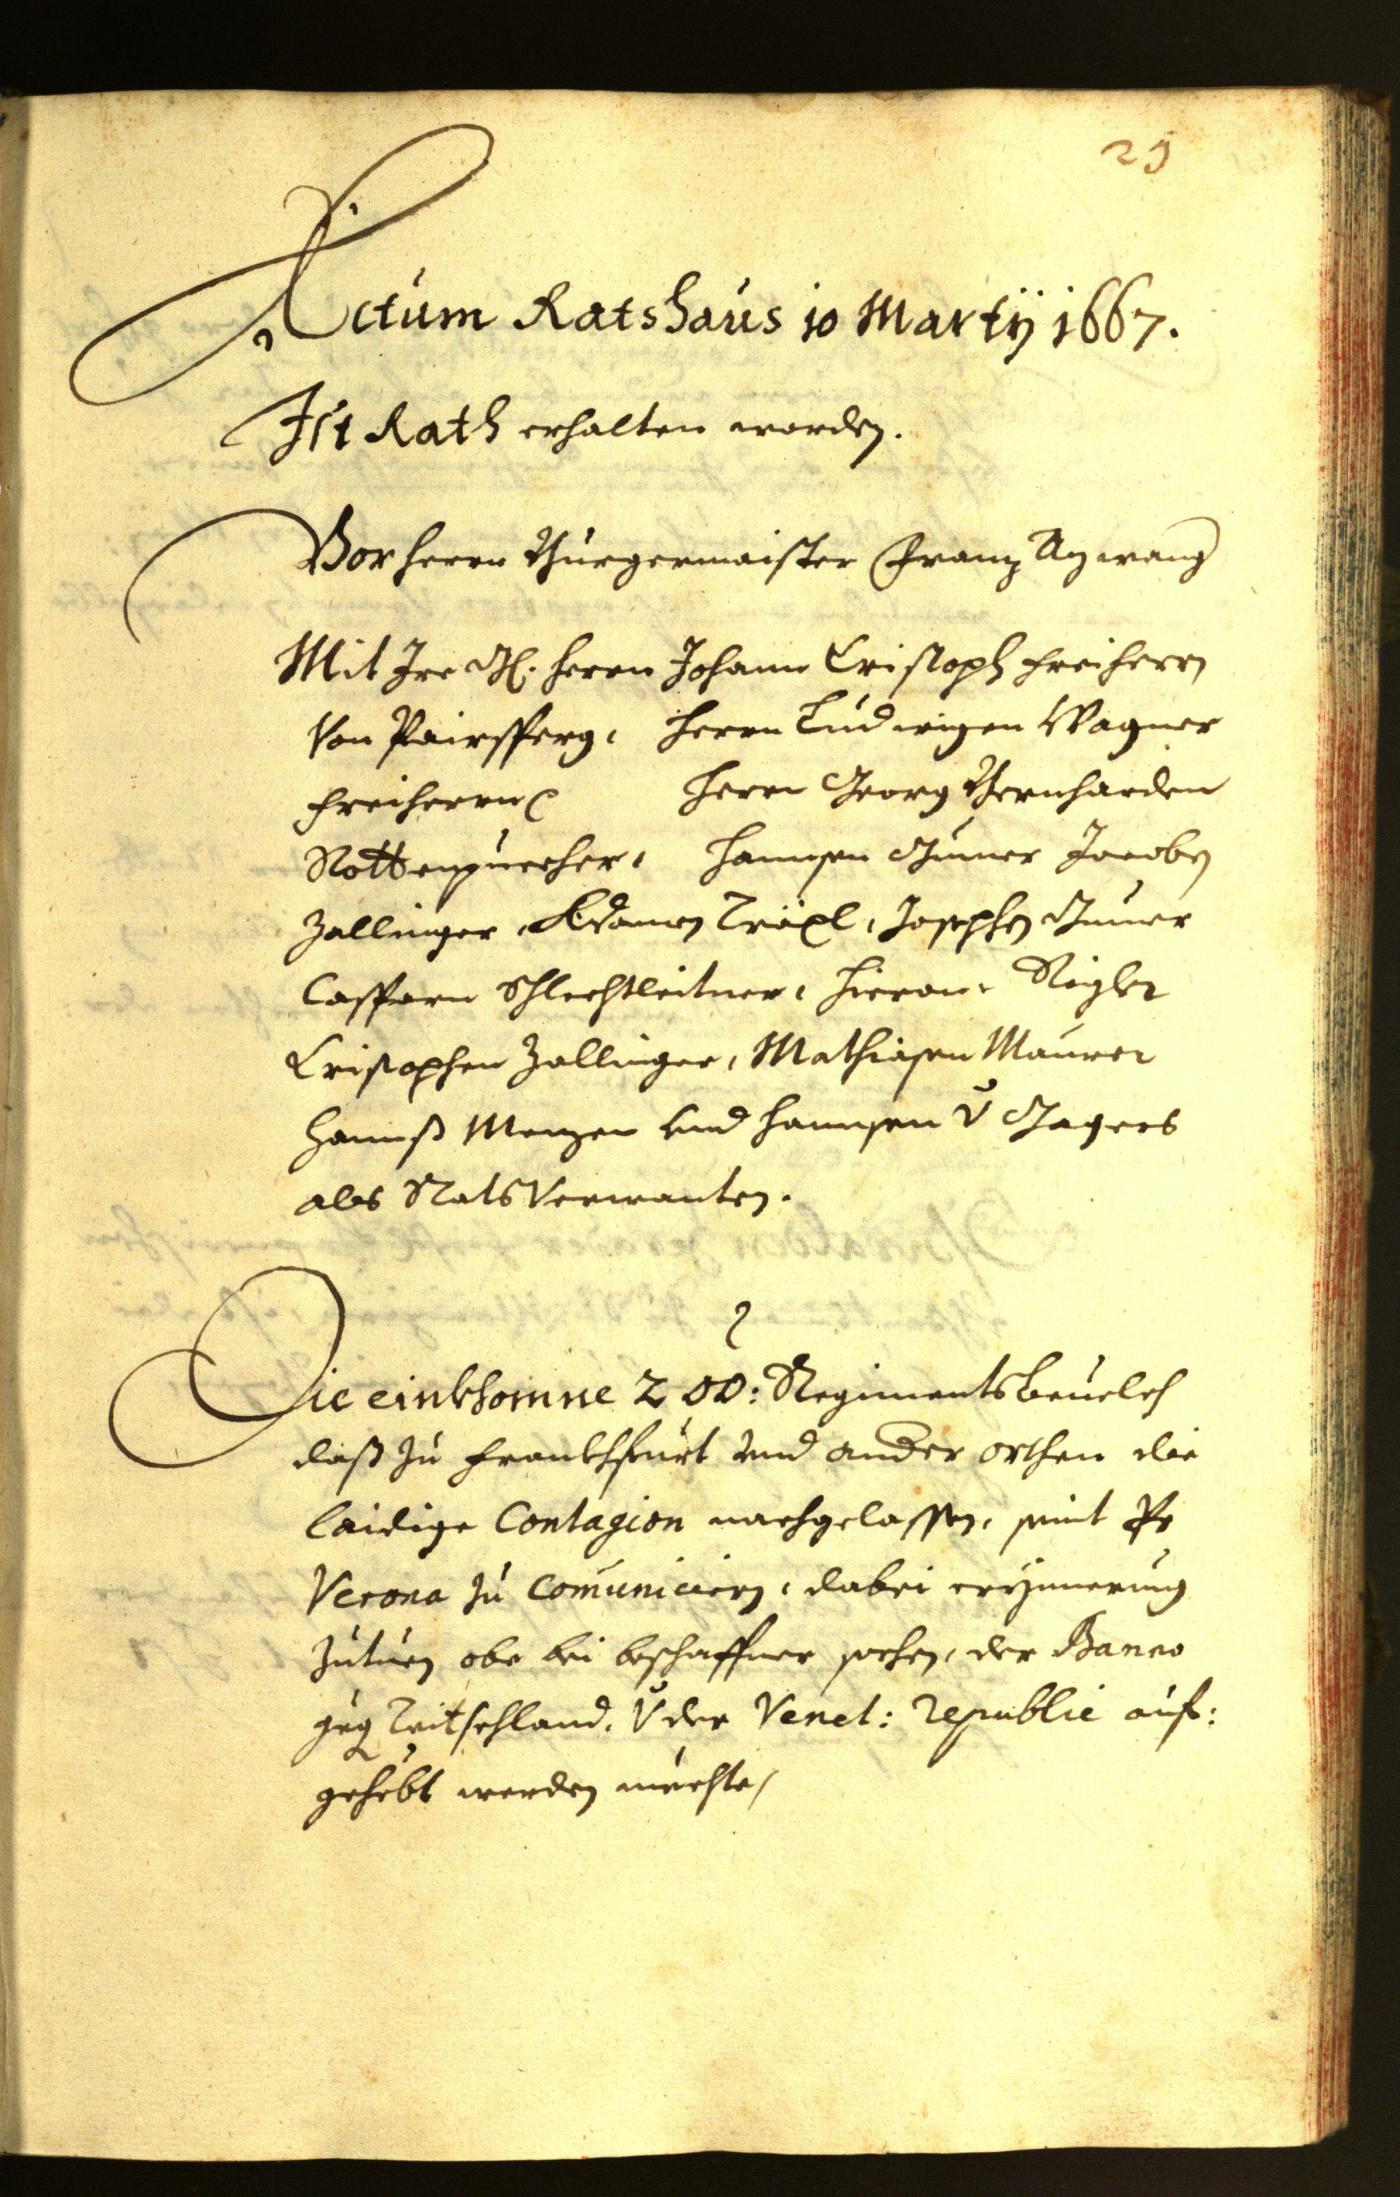 29
Actum Ratshaus 10 Martÿ 1667.
Ist Rath erhalten worden.
Vor herrn Burgermaister Franz Azwang
Mit Ire G. herrn Johann Cristoph Freiherrn
Von Pairsperg, herrn Ludwigen Wagner
Freiherrn herrn Georg Bernharden
Rottenpuecher, hannsen Gumer Jacoben
Zallinger, Adamen Träxl, Josephen Gumer
Casparn Schlechtleitner, hieron. Rigler
Cristophen Zallinger, Mathiasen Maurer
hannß Menzen und hannsen v Jagers
als RatsVerwanten.
2
Die einkhomne 2 OÖ: Regimentsbeuelch
daß zu Frankhfurt und ander orthen die
laidige Contagion nachgelassen, seint Pr
Verona zu Comuniciern, dabei erynnerung
zutuen obe bei beschaffner sachen, der Banno
gegen Teitschland, v der Venet: republic auf:
gehebt werden mechte,